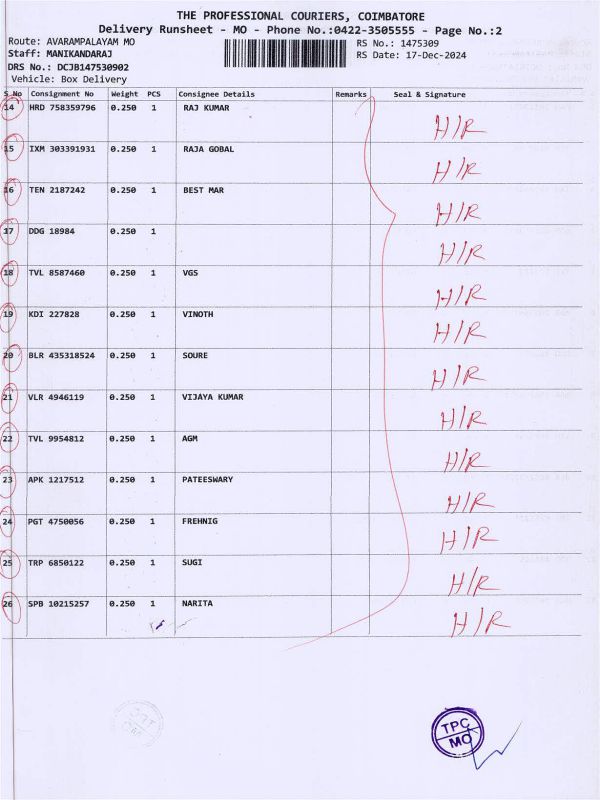 THE PROFESSIONAL COURIERS, COIMBATORE
Delivery Runsheet - MO - Phone No.:0422-3505555 - Page No.:2
Route: AVARAMPALAYAM MO RS No.: 1475309
Staff: MANIKANDARAJ RS Date: 17-Dec-2024
DRS No.: DCJB147530902
Vehicle: Box Delivery
S No Consignment No Weight PCS Consignee Details Remarks Seal & Signature
14 HRD 758359796 0.250 1 RAJ KUMAR H/R
15 IXM 303391931 0.250 1 RAJA GOBAL H/R
16 TEN 2187242 0.250 1 BEST MAR H/R
17 DDG 18984 0.250 1 H/R
18 TVL 8587460 0.250 1 VGS H/R
19 KDI 227828 0.250 1 VINOTH H/R
20 BLR 435318524 0.250 1 SOURE H/R
21 VLR 4946119 0.250 1 VIJAYA KUMAR H/R
22 TVL 9954812 0.250 1 AGM H/R
23 APK 1217512 0.250 1 PATEESWARY H/R
24 PGT 4750056 0.250 1 FREHNIG H/R
25 TRP 6850122 0.250 1 SUGI H/R
26 SPB 10215257 0.250 1 NARITA H/R
TPC
MO